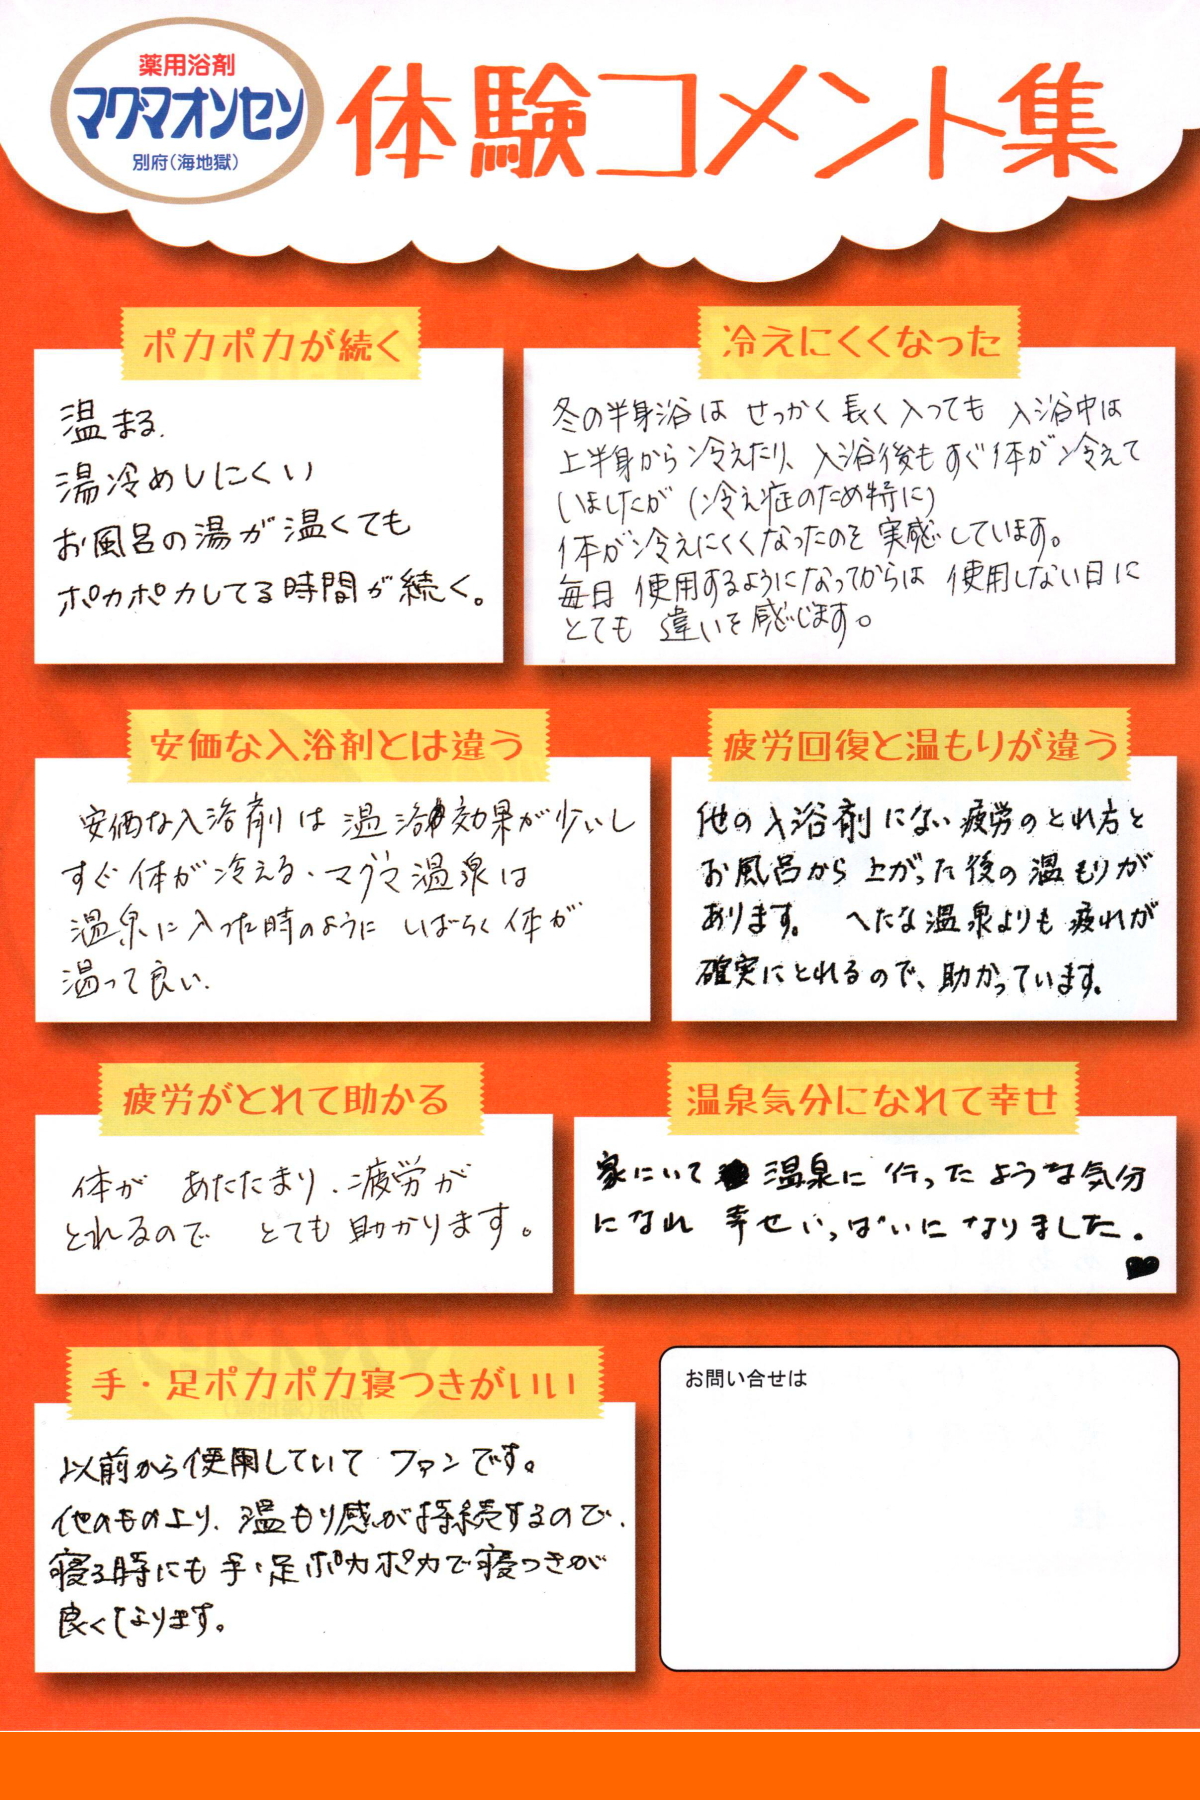 薬用浴剤
マグマオンセン
別府(海地獄)
体験コメント集
ポカポカが続く
温まる.
湯冷めしにくい
お風呂の湯が温くても
ポカポカしてる時間が続く。
冷えにくくなった
冬の半身浴は せっかく長く入っても 入浴中は
上半身から冷えたり、入浴後もすぐ体が冷えて
いましたが (冷え症のため特に)
体が冷えにくくなったのを実感しています。
毎日使用するようになってからは 使用しない日に
とても 違いを感じます。
安価な入浴剤とは違う
安価な入浴剤は温浴効果が少いし
すぐ体が冷える・マグマ温泉は
温泉に入った時のように しばらく体が
温って良い.
疲労回復と温もりが違う
他の入浴剤にない疲労のとれ方と
お風呂から上がった後の温もりが
あります。 へたな温泉よりも疲れが
確実にとれるので、助かっています。
疲労がとれて助かる
体が あたたまり、疲労が
とれるので とても助かります。
温泉気分になれて幸せ
家にいて 温泉に行ったような気分
になれ 幸せいっぱいになりました.
♥
手・足ポカポカ寝つきがいい
以前から使用していて ファンです。
他のものより、温もり感が持続するので、
寝る時にも手・足ポカポカで寝つきが
良くなります。
お問い合せは